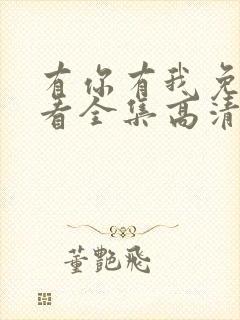 有你有我免
看全集高清
董艷飛